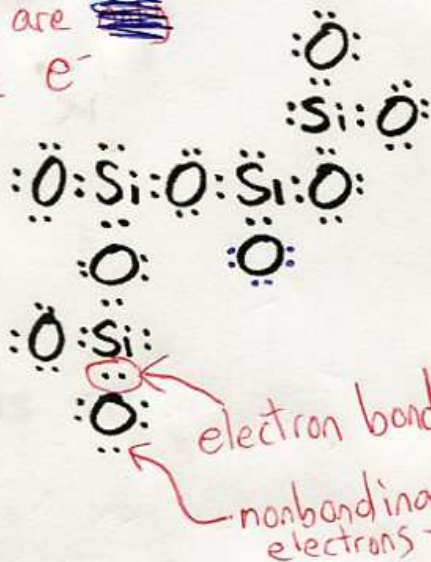 are
e⁻
O
Si O
O Si O Si O
O O
O Si
O
electron bond
nonbonding
electrons